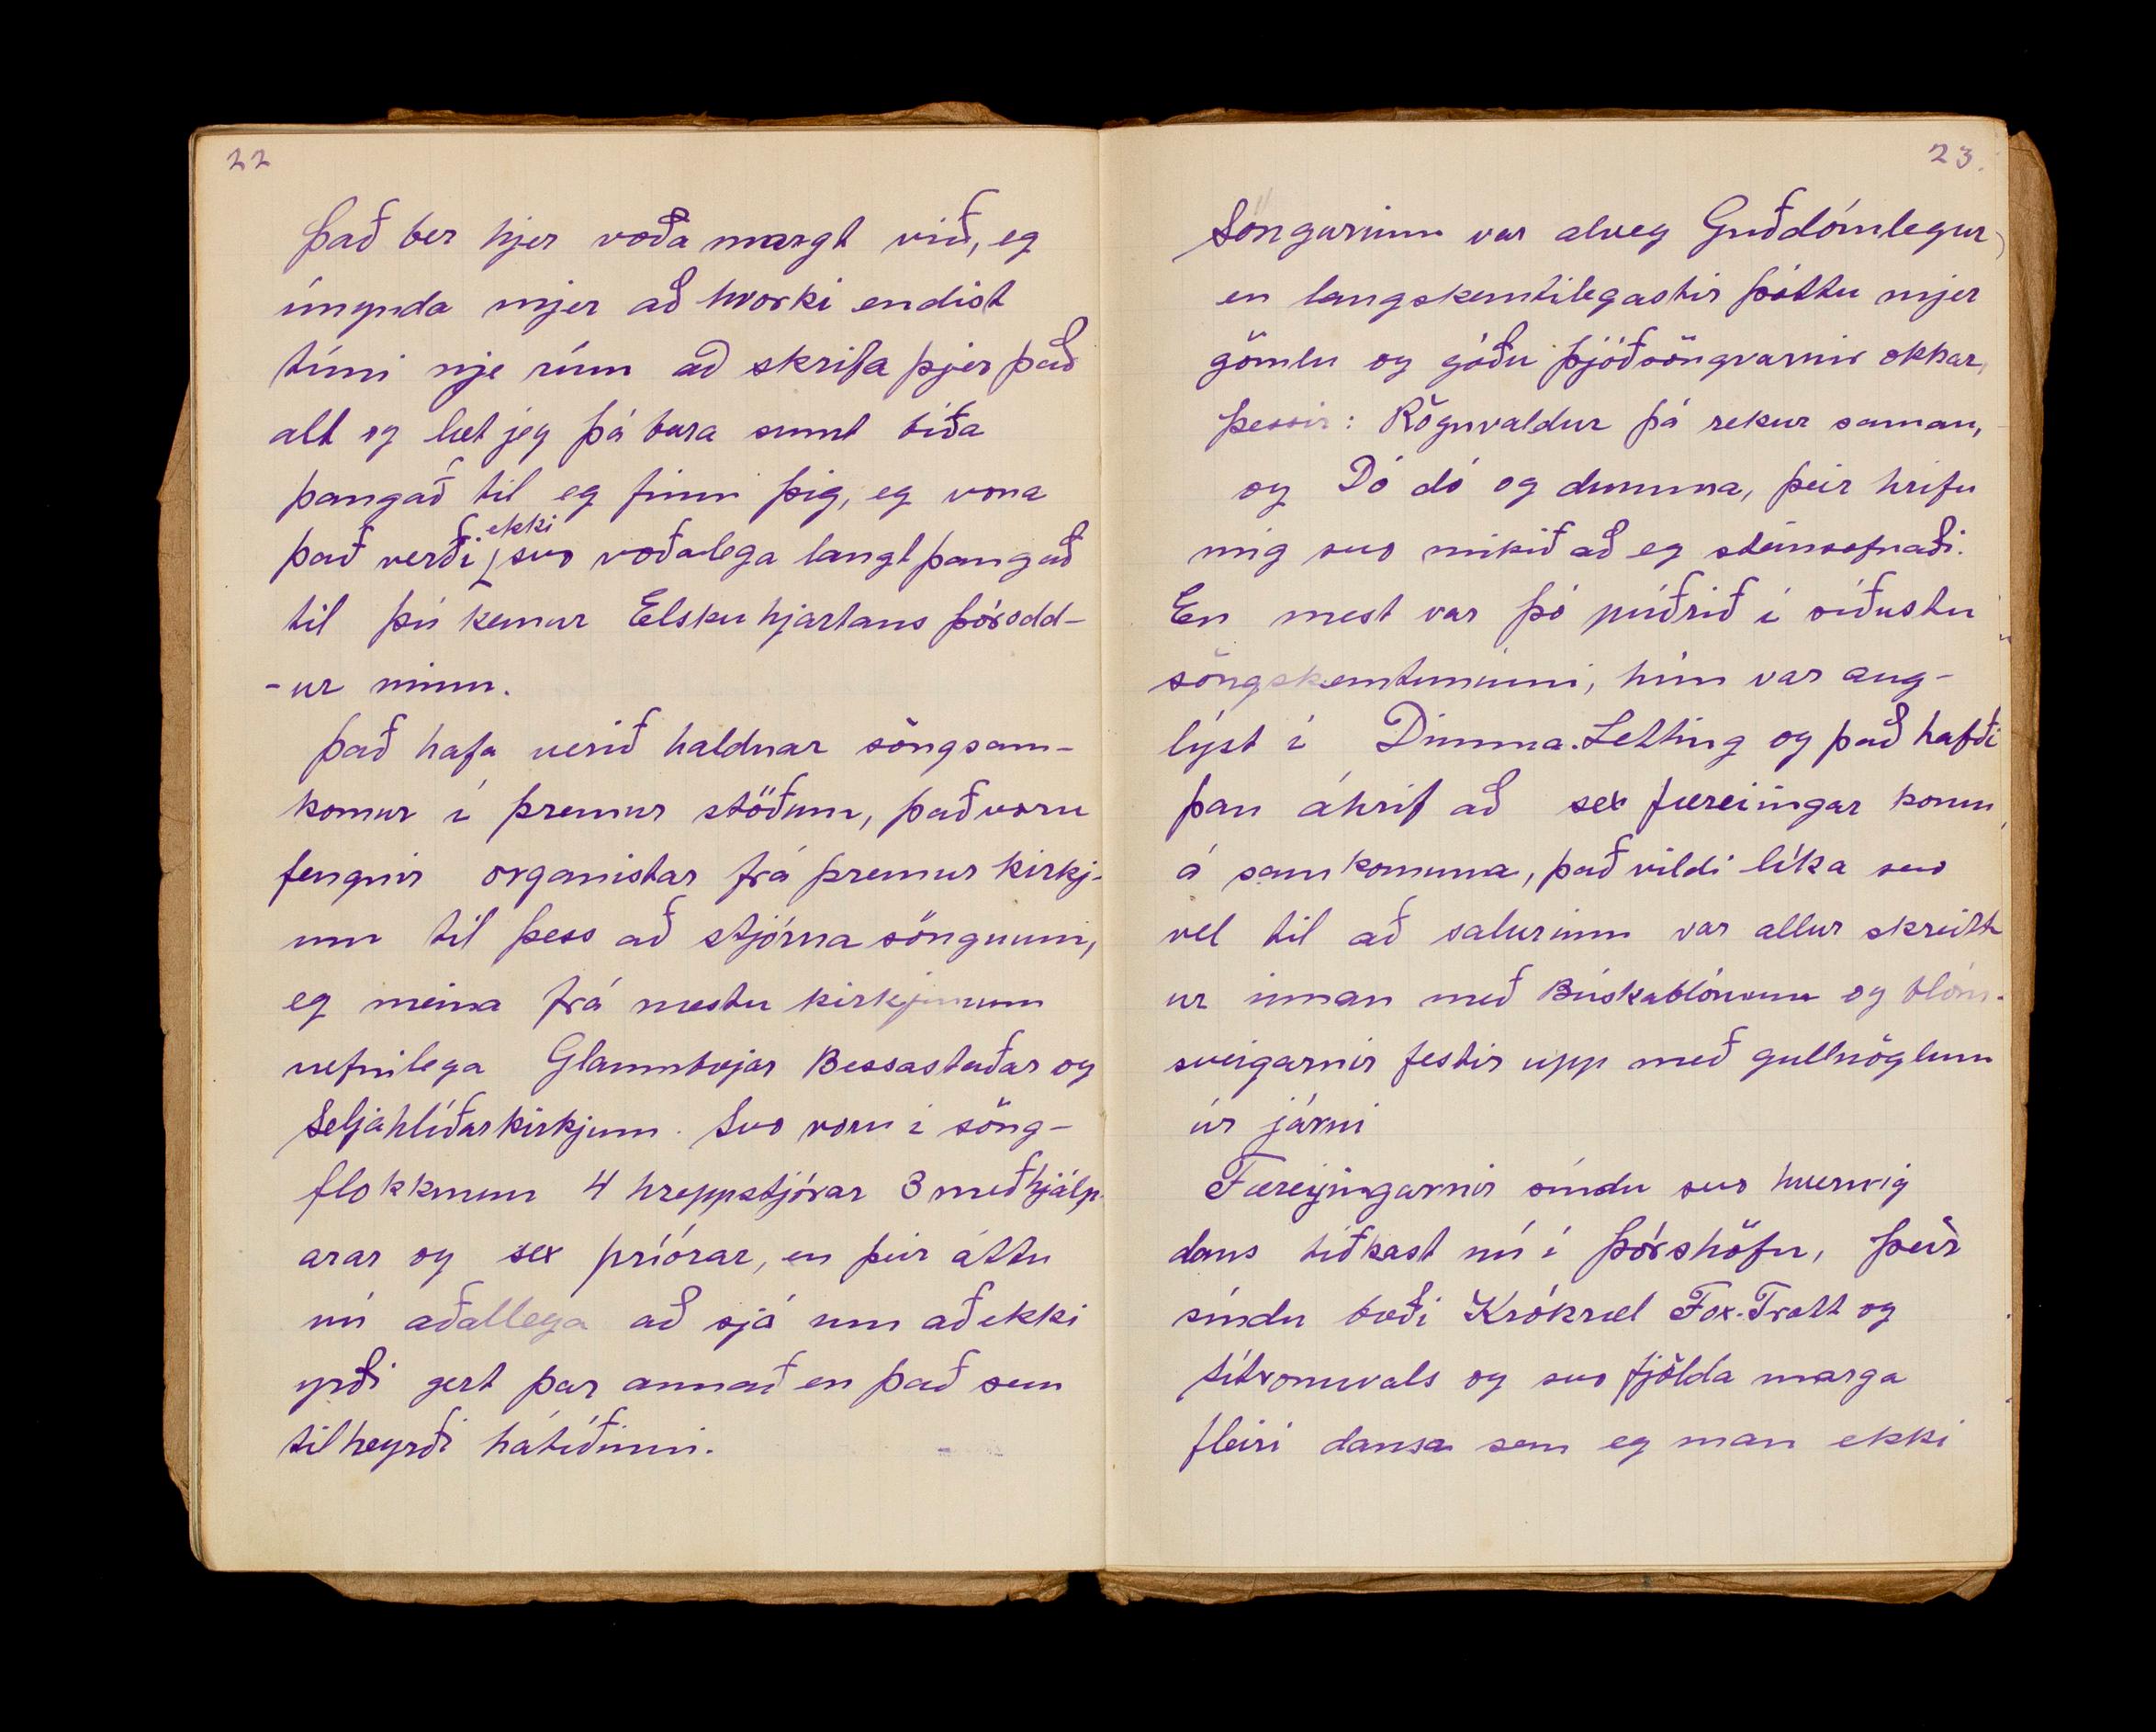 22
Það ber hjer voða margt við, eg
ímynda mjer að hvorki endist
tími nje rúm að skrifa þjer það
alt og læt jeg þá bara sumt bíða
þangað til eg finn þig, eg vona
það verði ekki svo voðalega langt þangað
til þú kemur Elsku hjartans þórodd-
-ur minn.
Það hafa verið haldnar söngsam-
komur í þremur stöðum, það voru
fengnir organistar frá þremur kirkj-
um til þess að stjórna söngnum,
eg meina frá næstu kirkjunum
nefnilega Glammbæjar Bessastaðar og
Seljahlíðarkirkjum. Svo voru í söng-
flokknum 4 hreppstjórar 3 meðhjálp-
arar og sex príórar, en þeir áttu
nú aðallega að sjá um að ekki
yrði gert þar annað en það sem
tilheyrði hátíðinni.
23.
Söngurinn var alveg Guðdómlegur,
en langskemtilegastir þóttu mjer
gömlu og góðu þjóðsöngvarnir okkar,
þessir: Rögnvaldur þá rekur saman,
og Dó dó og dumma, þeir hrifu
mig svo mikið að eg steinsofnaði.
En mest var þó púðrið í síðustu
söngskemtuninni, hún var aug-
lýst í Dimma-Letting og það hafði
þau áhrif að sex færeiingar komu
á samkomuna, það vildi líka svo
vel til að salurinn var allur skreitt
ur innan með Búskablómum og blóm-
sveigarnir festir upp með gullnöglum
úr járni
Færeyingarnir síndu svo hvernig
dans tíðkast nú í Þórshöfn, Þeir
síndu bæði Krókræl Fox-Trott og
títromvals og svo fjölda marga
fleiri dansa sem eg man ekki